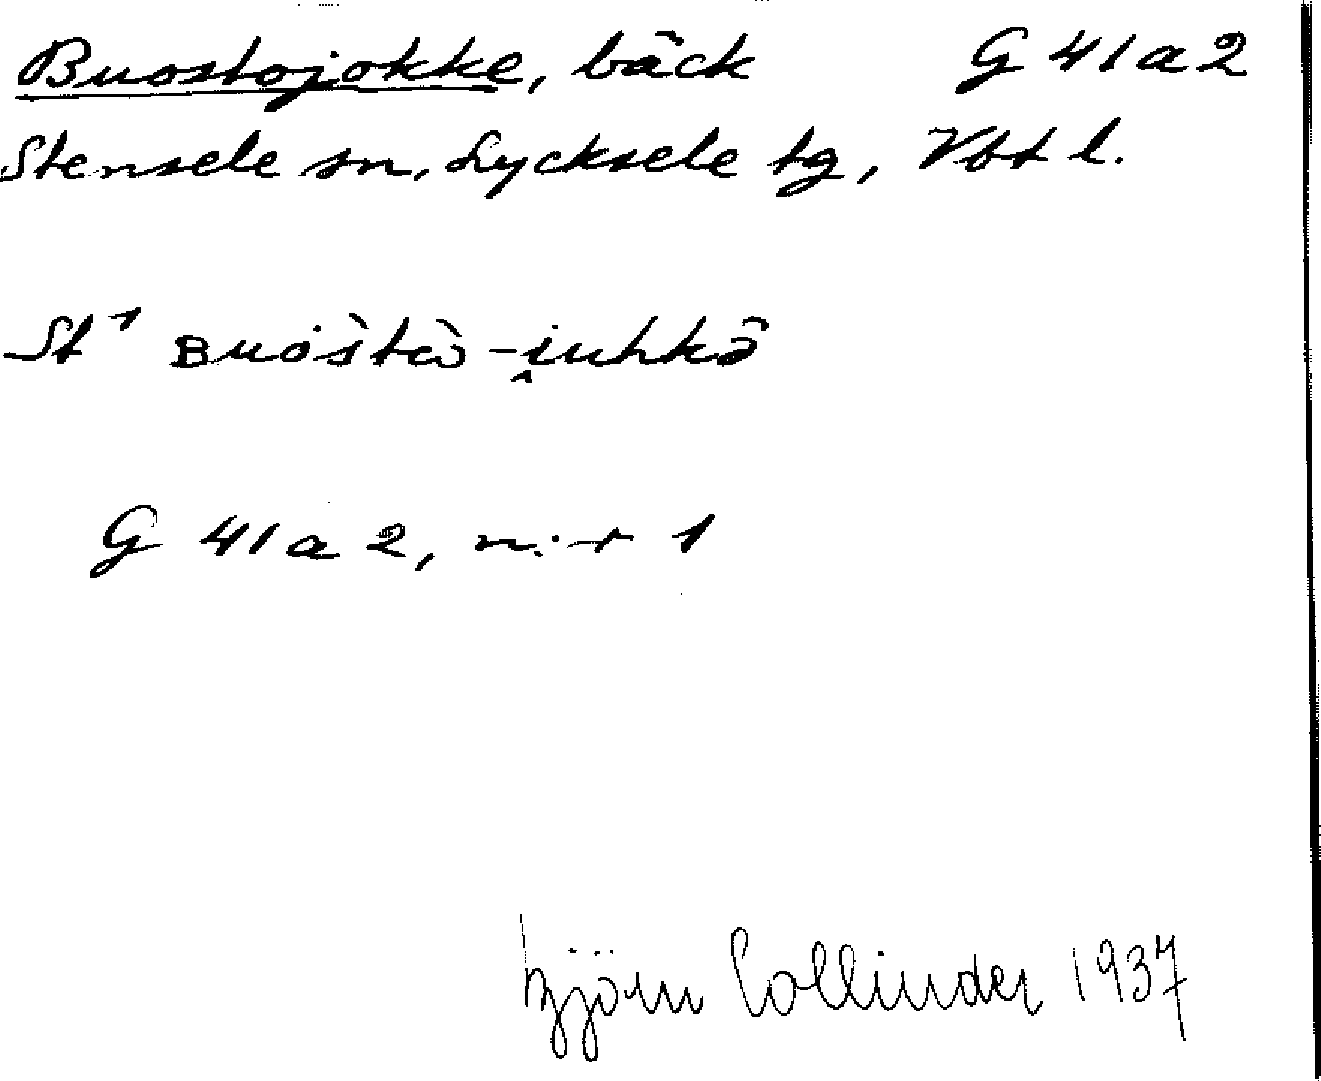 Buostojokke, bäck G 41 a 2
Stensele sn, Lycksele tg, Vbt l.
St¹ ʙuóstà̮-i̯uhkə̑
G 41 a 2, n:r 1
Björn Collinder 1937